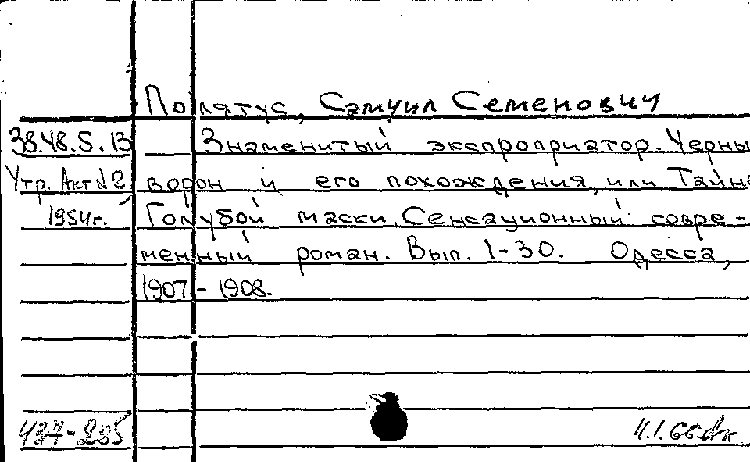 Полятус, Самуил Семенович
38.48.5.13 Знаменитый экспроприатор. Черны
Утр. Акт №2 ворон и его похождения, или Тайн
1954г. Голубой маски. Сенсационный совре-
менный роман. Вып. 1-30. Одесса,
1907-1908.
437-285 4.1.66